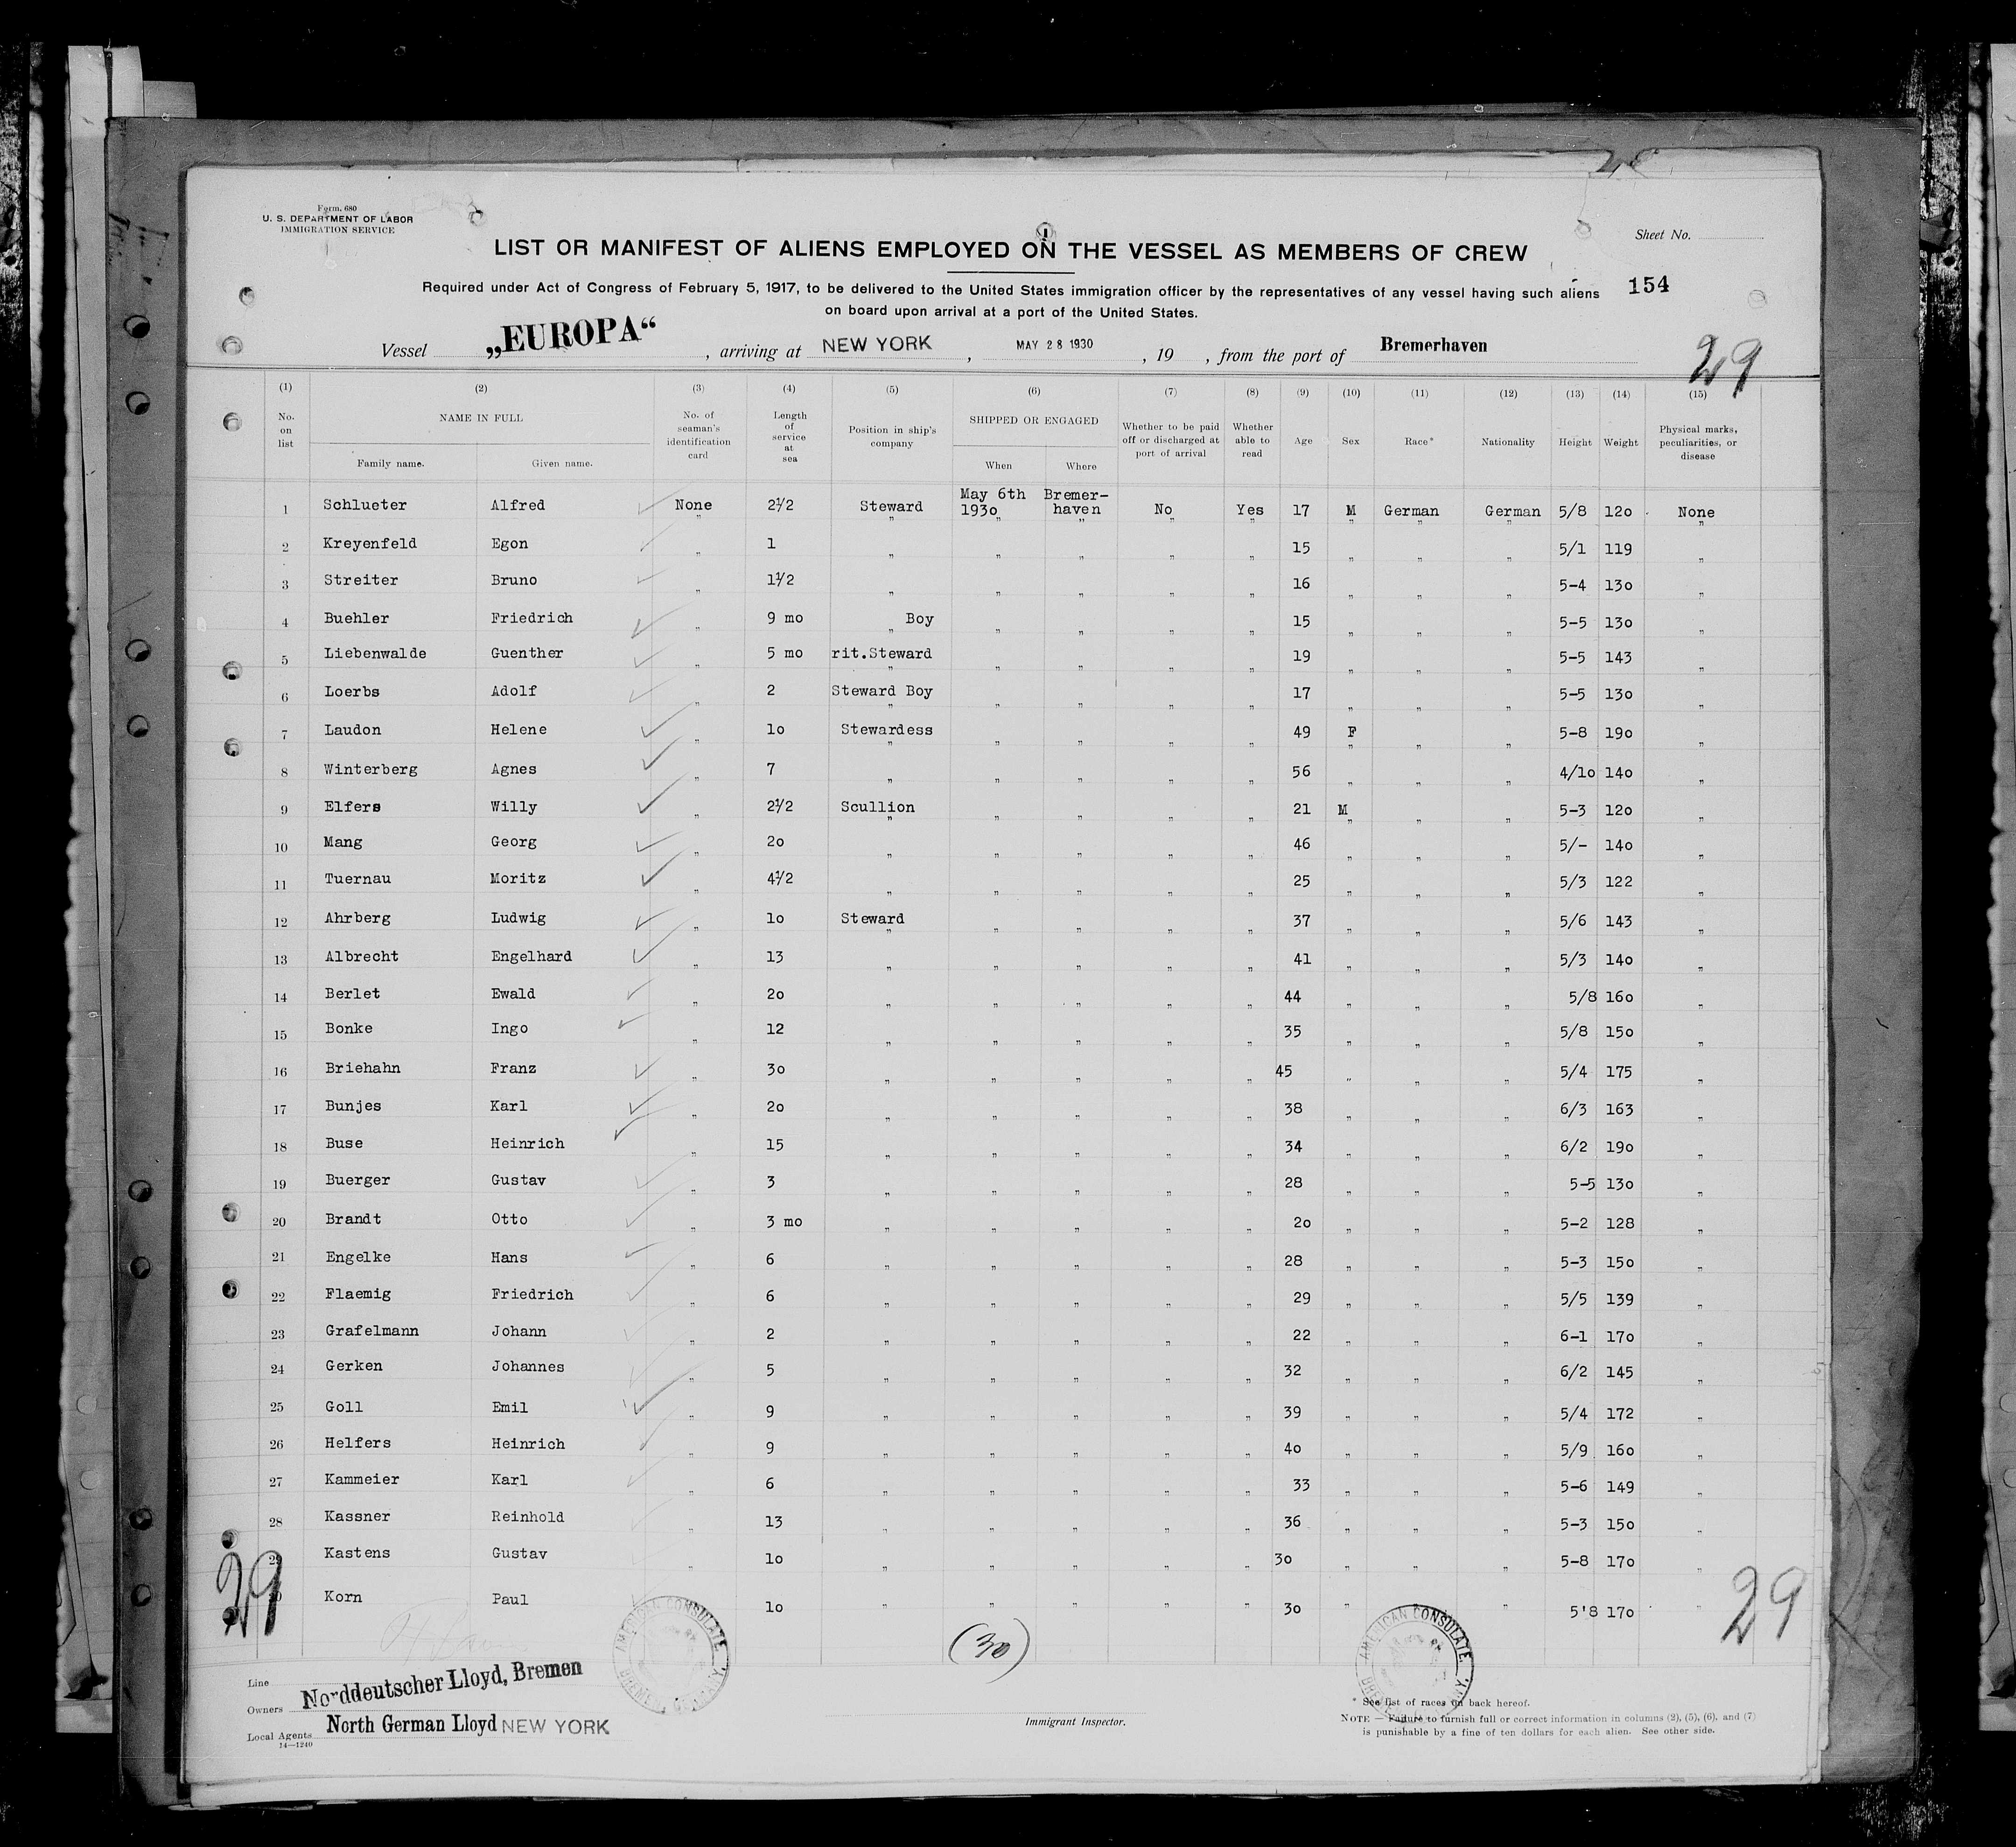 Form. 680
U. S. DEPARTMENT OF LABOR
IMMIGRATION SERVICE
Sheet No.
LIST OR MANIFEST OF ALIENS EMPLOYED ON THE VESSEL AS MEMBERS OF CREW
Required under Act of Congress of February 5, 1917, to be delivered to the United States immigration officer by the representatives of any vessel having such aliens
on board upon arrival at a port of the United States.
154
Vessel „EUROPA“, arriving at NEW YORK, MAY 28 1930, 19 , from the port of Bremerhaven
29
(1) (2) (3) (4) (5) (6) (7) (8) (9) (10) (11) (12) (13) (14) (15)
No. on list NAME IN FULL Family name. Given name. No. of seaman's identification card Length of service at sea Position in ship's company SHIPPED OR ENGAGED When Where Whether to be paid off or discharged at port of arrival Whether able to read Age Sex Race* Nationality Height Weight Physical marks, peculiarities, or disease
1 Schlueter Alfred None 2½ Steward May 6th 193o Bremer-haven No Yes 17 M German German 5/8 12o None
2 Kreyenfeld Egon „ 1 „ „ „ „ „ 15 „ „ „ 5/1 119 „
3 Streiter Bruno „ 1½ „ „ „ „ „ 16 „ „ „ 5-4 13o „
4 Buehler Friedrich „ 9 mo „ Boy „ „ „ „ 15 „ „ „ 5-5 13o „
5 Liebenwalde Guenther „ 5 mo rit.Steward „ „ „ „ 19 „ „ „ 5-5 143 „
6 Loerbs Adolf „ 2 Steward Boy „ „ „ „ 17 „ „ „ 5-5 13o „
7 Laudon Helene „ 1o Stewardess „ „ „ „ 49 F „ „ 5-8 19o „
8 Winterberg Agnes „ 7 „ „ „ „ „ 56 „ „ „ 4/1o 14o „
9 Elfers Willy „ 2½ Scullion „ „ „ „ 21 M „ „ 5-3 12o „
10 Mang Georg „ 2o „ „ „ „ „ 46 „ „ „ 5/- 14o „
11 Tuernau Moritz „ 4½ „ „ „ „ „ 25 „ „ „ 5/3 122 „
12 Ahrberg Ludwig „ 1o Steward „ „ „ „ 37 „ „ „ 5/6 143 „
13 Albrecht Engelhard „ 13 „ „ „ „ „ 41 „ „ „ 5/3 14o „
14 Berlet Ewald „ 2o „ „ „ „ „ 44 „ „ „ 5/8 16o „
15 Bonke Ingo „ 12 „ „ „ „ „ 35 „ „ „ 5/8 15o „
16 Briehahn Franz „ 3o „ „ „ „ „ 45 „ „ „ 5/4 175 „
17 Bunjes Karl „ 2o „ „ „ „ „ 38 „ „ „ 6/3 163 „
18 Buse Heinrich „ 15 „ „ „ „ „ 34 „ „ „ 6/2 19o „
19 Buerger Gustav „ 3 „ „ „ „ „ 28 „ „ „ 5-5 13o „
20 Brandt Otto „ 3 mo „ „ „ „ „ 2o „ „ „ 5-2 128 „
21 Engelke Hans „ 6 „ „ „ „ „ 28 „ „ „ 5-3 15o „
22 Flaemig Friedrich „ 6 „ „ „ „ „ 29 „ „ „ 5/5 139 „
23 Grafelmann Johann „ 2 „ „ „ „ „ 22 „ „ „ 6-1 17o „
24 Gerken Johannes „ 5 „ „ „ „ „ 32 „ „ „ 6/2 145 „
25 Goll Emil „ 9 „ „ „ „ „ 39 „ „ „ 5/4 172 „
26 Helfers Heinrich „ 9 „ „ „ „ „ 4o „ „ „ 5/9 16o „
27 Kammeier Karl „ 6 „ „ „ „ „ 33 „ „ „ 5-6 149 „
28 Kassner Reinhold „ 13 „ „ „ „ „ 36 „ „ „ 5-3 15o „
29 Kastens Gustav „ 1o „ „ „ „ „ 3o „ „ „ 5-8 17o „
30 Korn Paul 1o „ „ „ „ „ 3o „ „ 5'8 17o „
29
29
(30)
AMERICAN CONSULATE
AMERICAN CONSULATE
Line
Owners Norddeutscher Lloyd, Bremen
Local Agents North German Lloyd NEW YORK
14—1240
Immigrant Inspector.
* See list of races on back hereof.
NOTE — Failure to furnish full or correct information in columns (2), (5), (6), and (7)
is punishable by a fine of ten dollars for each alien. See other side.